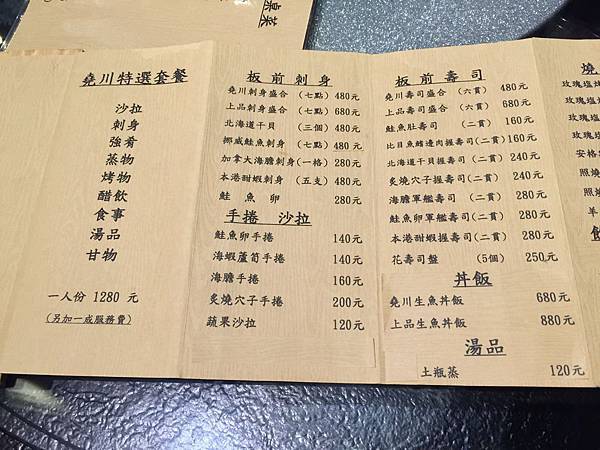 桌菜
堯川特選套餐
沙拉
刺身
強肴
蒸物
烤物
醋飲
食事
湯品
甘物
一人份 1280 元
(另加一成服務費)
板前刺身
堯川刺身盛合 (七點) 480元
上品刺身盛合 (七點) 680元
北海道干貝 (三個) 480元
挪威鮭魚刺身 (七點) 480元
加拿大海膽刺身(一格) 280元
本港甜蝦刺身 (五支) 480元
鮭魚卵 280元
手捲 沙拉
鮭魚卵手捲 140元
海蝦蘆筍手捲 140元
海膽手捲 160元
炙燒穴子手捲 200元
蔬果沙拉 120元
板前壽司
堯川壽司盛合 (六貫) 480元
上品壽司盛合 (六貫) 680元
鮭魚肚壽司 (二貫) 160元
比目魚鰭邊肉握壽司(二貫) 160元
北海道干貝握壽司(二貫) 240元
炙燒穴子握壽司(二貫) 240元
海膽軍艦壽司 (二貫) 280元
鮭魚卵軍艦壽司(二貫) 280元
本港甜蝦握壽司(二貫) 280元
花壽司盤 (5個) 250元
丼飯
堯川生魚丼飯 680元
上品生魚丼飯 880元
湯品
土瓶蒸 120元
燒
玫瑰塩
玫瑰塩
玫瑰塩
玫瑰塩
安格
照燒
照燒
羊